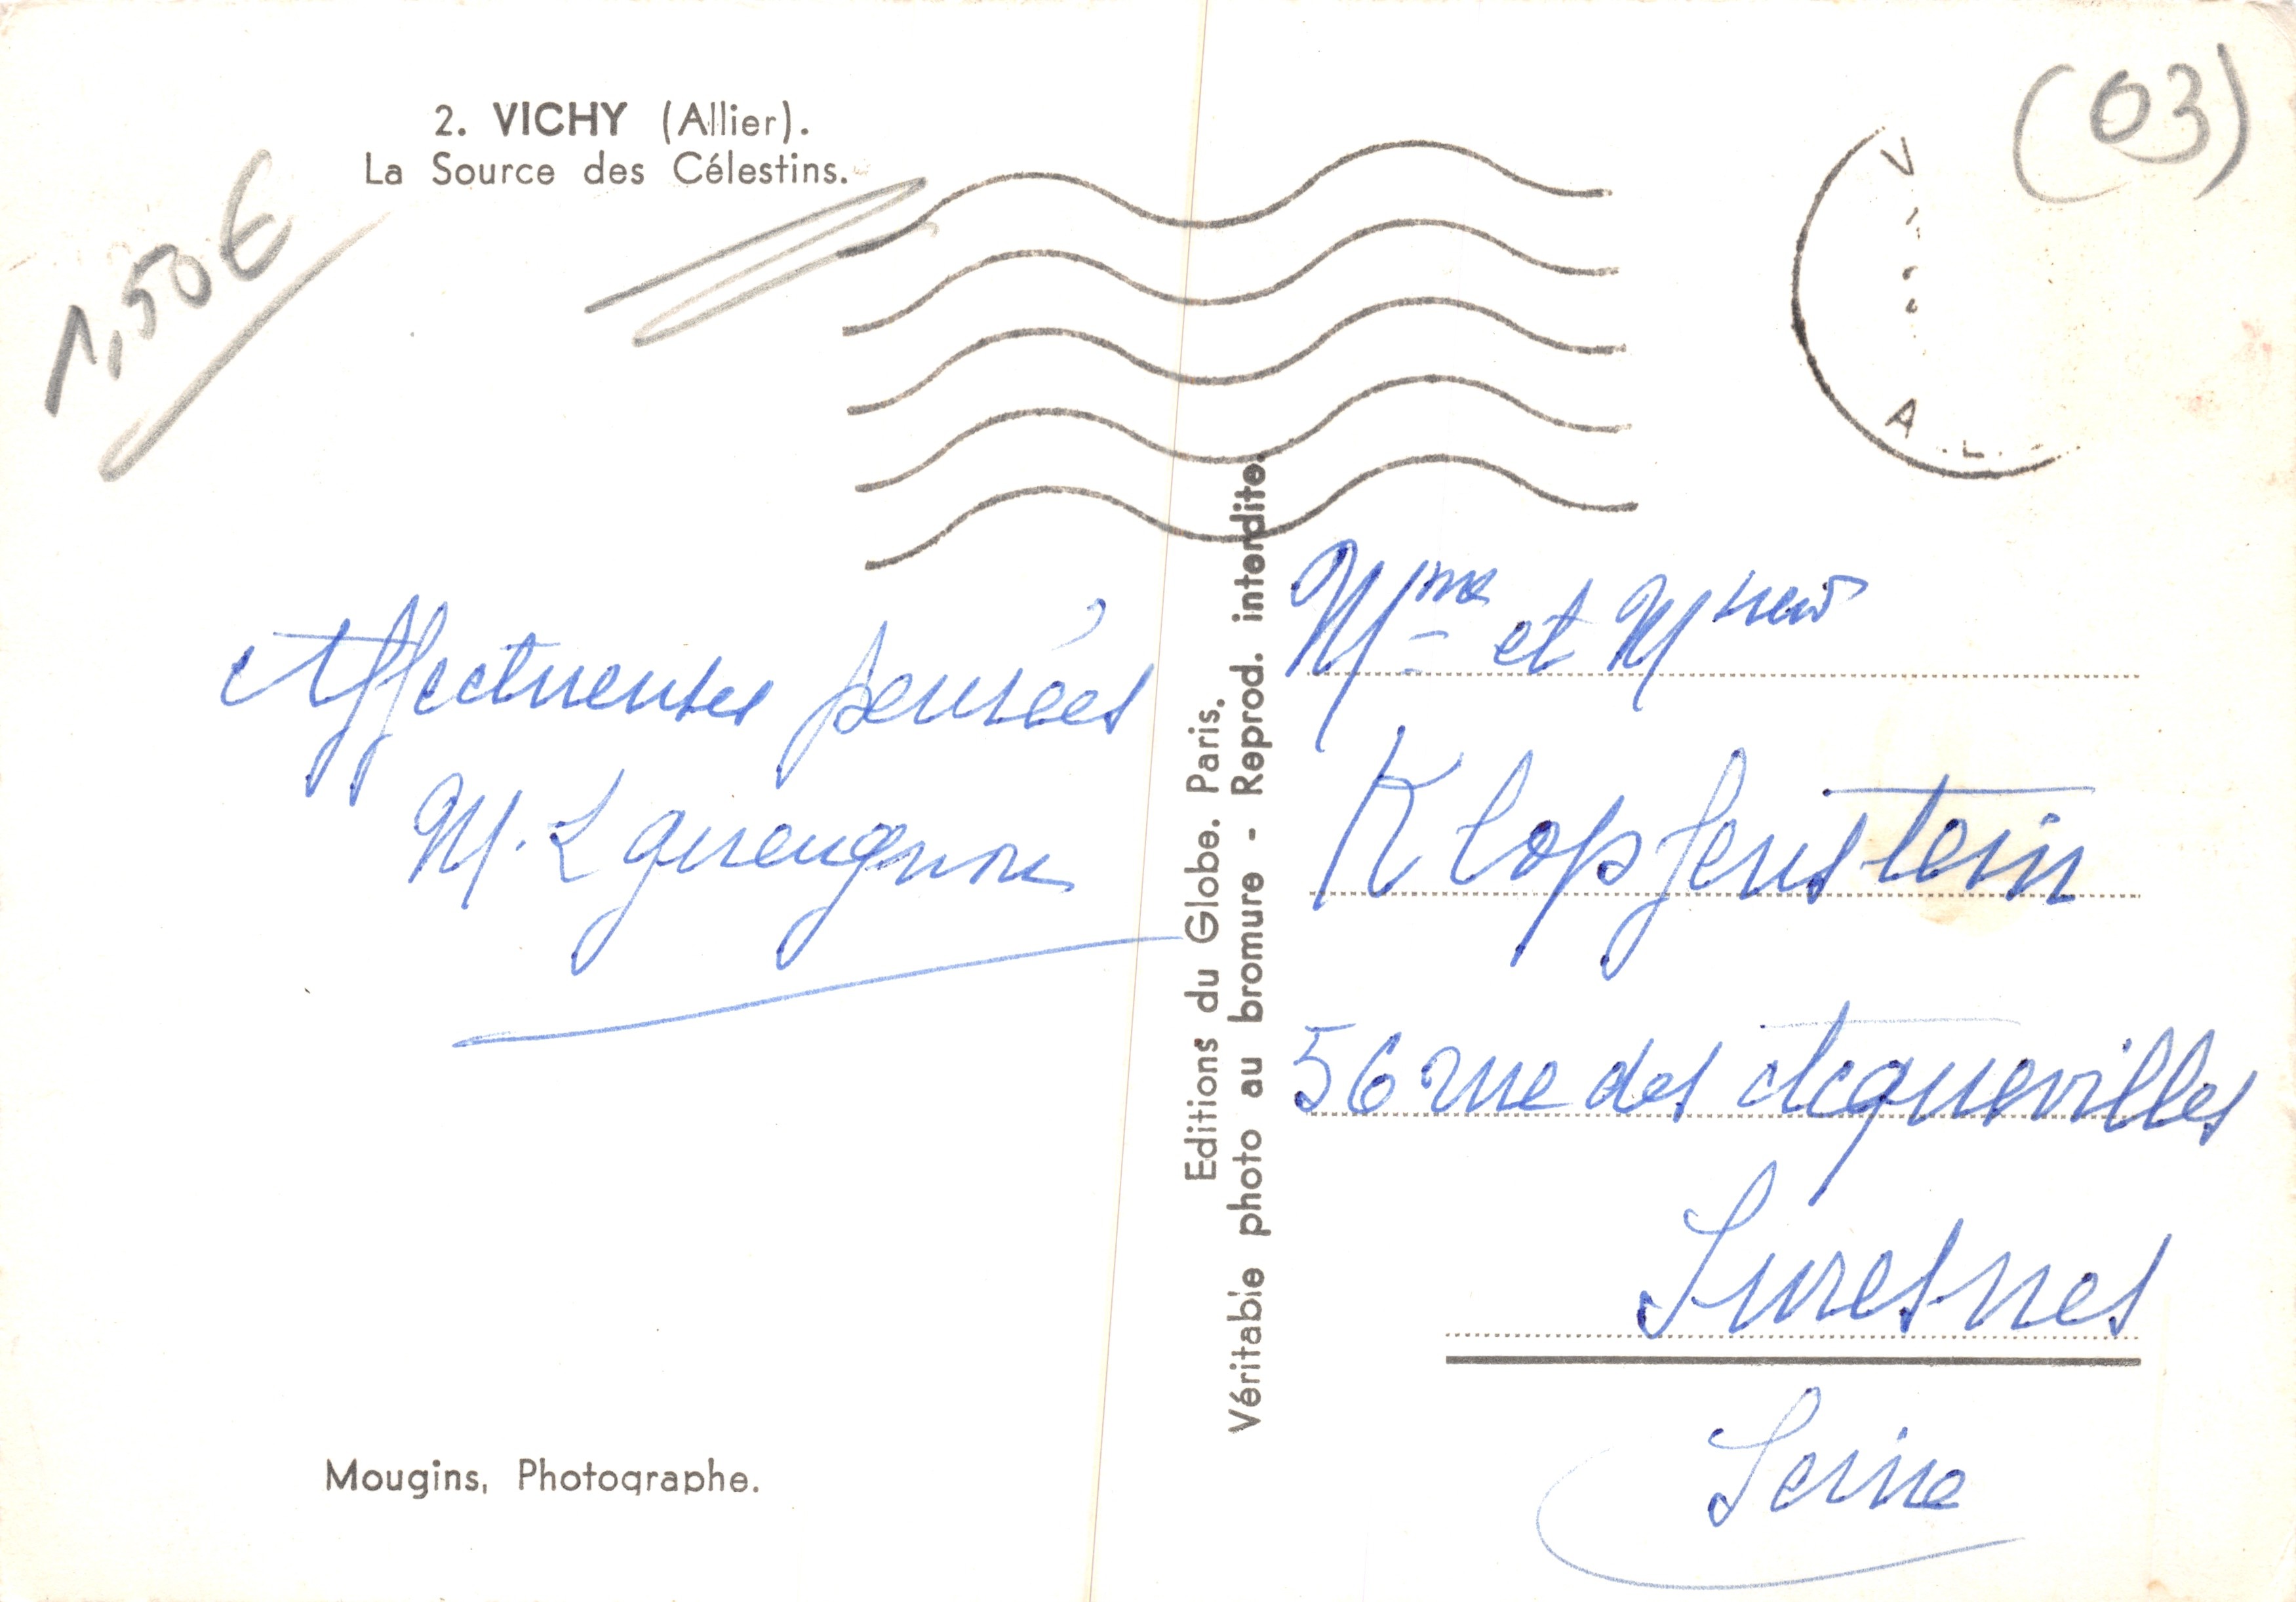 2. VICHY (Allier).
La Source des Célestins.
1,50€
(03)
Affectueuses pensées
M. L
Editions du Globe. Paris.
Véritable photo au bromure - Reprod. interdite.
Mme et M
Klopfenstein
56 rue des Acquevilles
Suresnes
Seine
Mougins, Photographe.